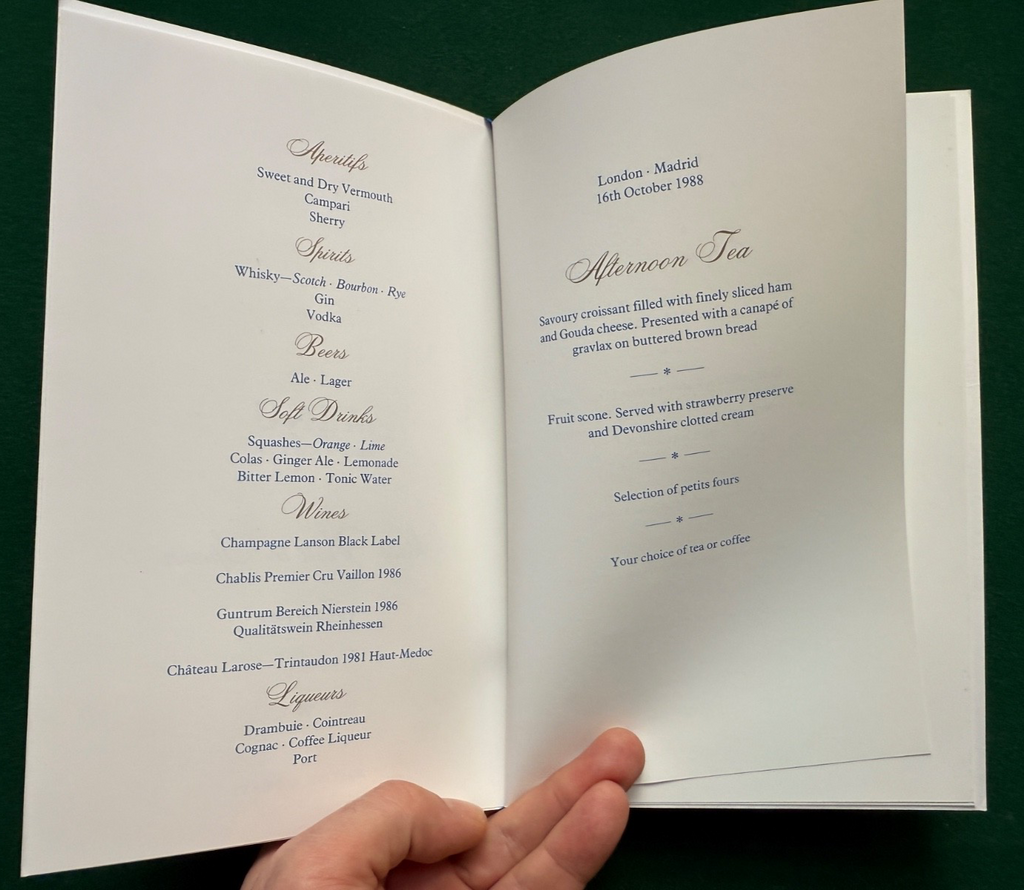 Aperitifs
Sweet and Dry Vermouth
Campari
Sherry
Spirits
Whisky—Scotch · Bourbon · Rye
Gin
Vodka
Beers
Ale · Lager
Soft Drinks
Squashes—Orange · Lime
Colas · Ginger Ale · Lemonade
Bitter Lemon · Tonic Water
Wines
Champagne Lanson Black Label
Chablis Premier Cru Vaillon 1986
Guntrum Bereich Nierstein 1986
Qualitätswein Rheinhessen
Château Larose—Trintaudon 1981 Haut-Medoc
Liqueurs
Drambuie · Cointreau
Cognac · Coffee Liqueur
Port
London · Madrid
16th October 1988
Afternoon Tea
Savoury croissant filled with finely sliced ham
and Gouda cheese. Presented with a canapé of
gravlax on buttered brown bread
— * —
Fruit scone. Served with strawberry preserve
and Devonshire clotted cream
— * —
Selection of petits fours
— * —
Your choice of tea or coffee